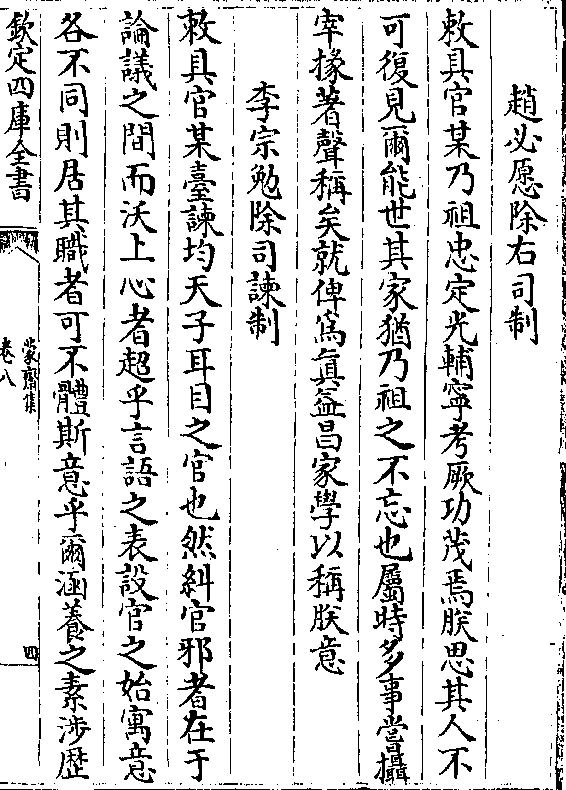 趙必愿除右司制
敕具官某乃祖忠定光輔寧考厥功茂焉朕思其人不
可復見爾能世其家猶乃祖之不忘也屬時多事嘗攝
宰掾著聲稱矣就俾爲眞益昌家學以稱朕意
李宗勉除司諫制
敕具官某臺諫均天子耳目之官也然糾官邪者在于
論議之間而沃上心者超乎言語之表設官之始寓意
各不同則居其職者可不體斯意乎爾涵養之素涉歴
欽定四庫全書
蒙齋集
卷八
四